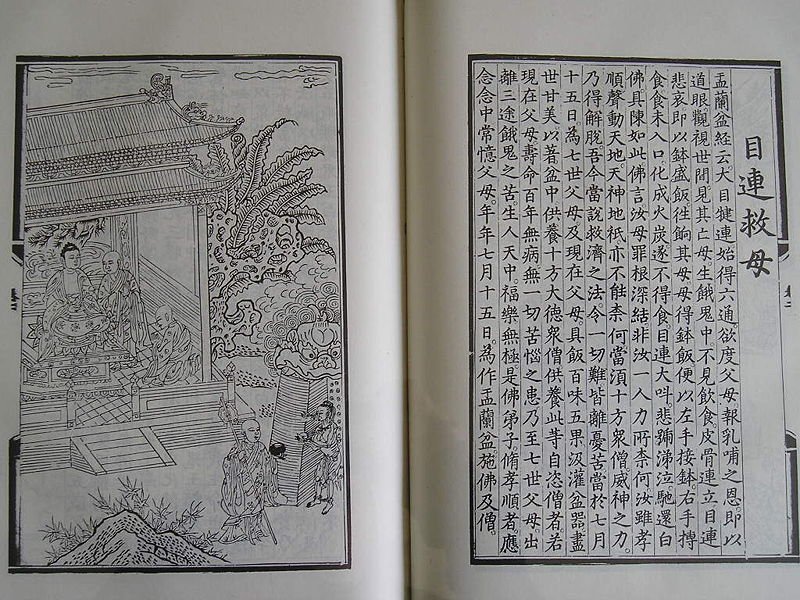 目連救母
盂蘭盆經云大目犍連始得六通。欲度父母報乳哺之恩。即以
道眼觀視世間。見其亡母。生餓鬼中。不見飲食。皮骨連立。目連
悲哀。即以鉢盛飯。往餉其母。母得鉢飯。便以左手接鉢。右手摶
食。食未入口。化成火炭。遂不得食。目連大叫。悲踊涕泣。馳還白
佛。具陳如此。佛言汝母罪根深結。非汝一人力所柰何。汝雖孝
順聲動天地。天神地祇。亦不能柰何。當須十方眾僧威神之力。
乃得解脫。吾今當說救濟之法。令一切難。皆離憂苦。當於七月
十五日。為七世父母。及現在父母。具飯百味五果。汲灌盆器。盡
世甘美。以著盆中。供養十方大德眾僧。供養此等自恣僧者。若
現在父母。壽命百年無病。無一切苦惱之患。乃至七世父母。出
離三途餓鬼之苦。生人天中。福樂無極。是佛弟子脩孝順者。應
念念中常憶父母。年年七月十五日。為作盂蘭盆。施佛及僧。